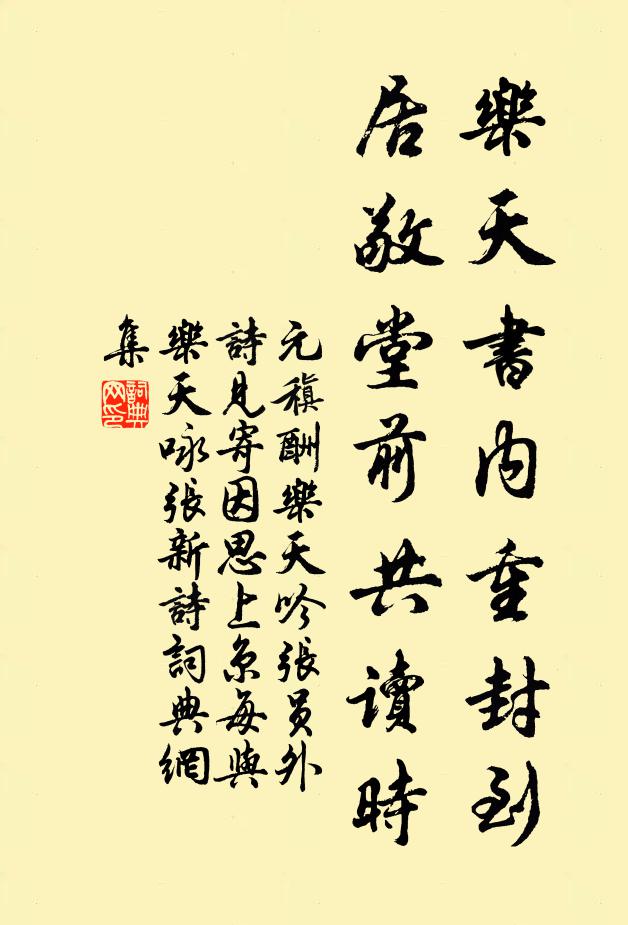 樂天書內重封到
居敬堂前共讀時
元稹酬樂天吟張員外
詩見寄因思上京每與
樂天詠張新詩詞典網
集
詞典
网印